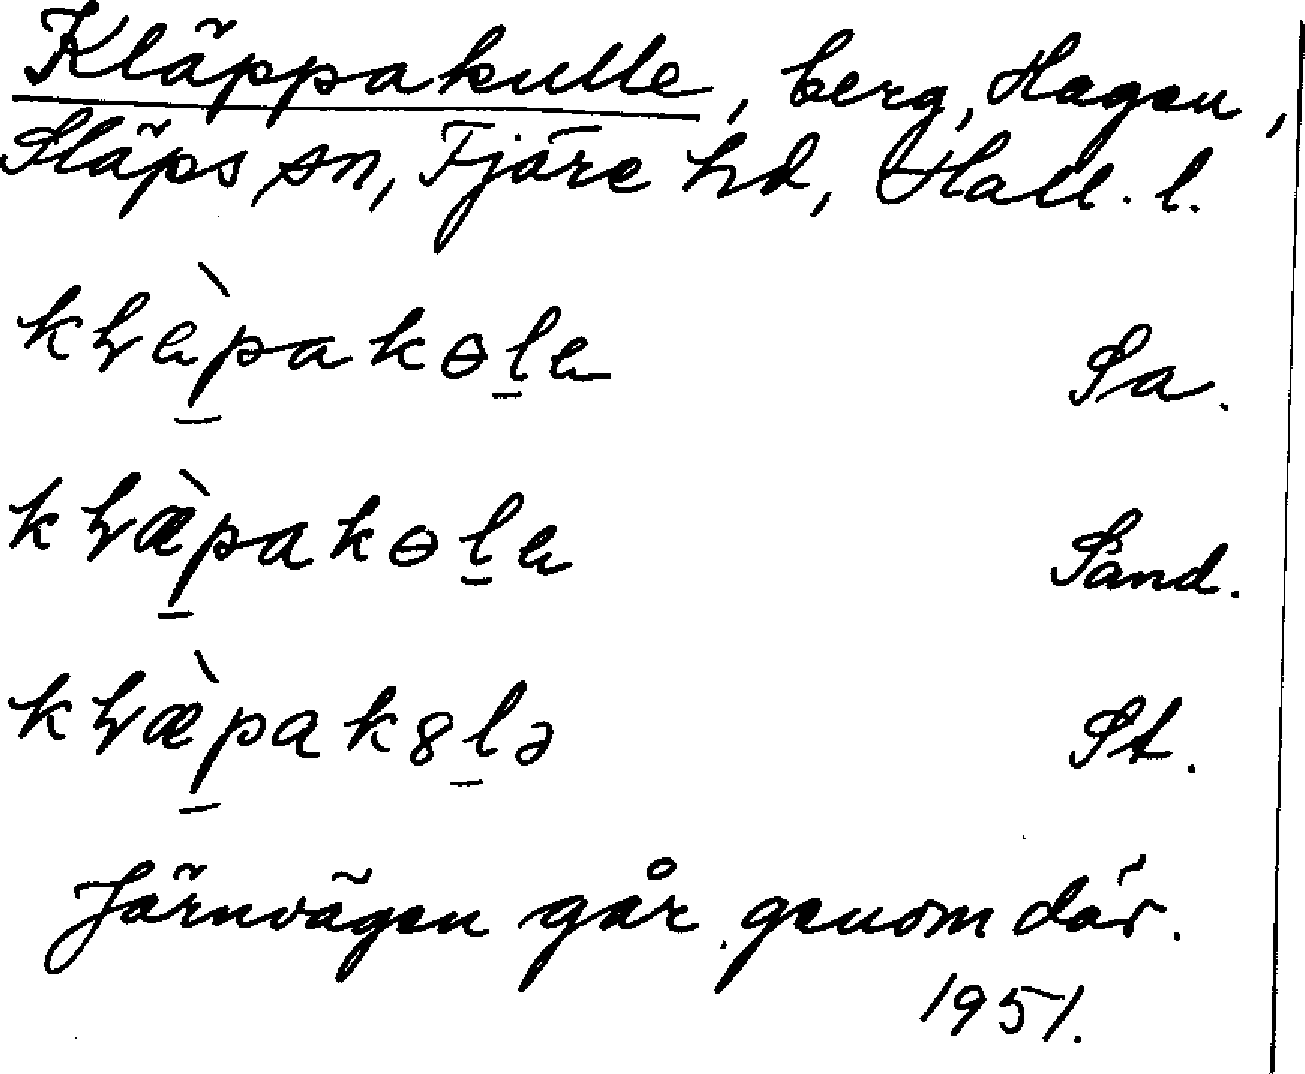 Kläppakulle, berg, Hagen,
Släps sn, Fjäre hd, Hall. l.
kḷæ̀p̲akɵl̲e Sa.
kḷæ̀p̲akɵl̲e Sand.
kḷæ̀p̲ak8l̲ə St.
Järnvägen går genom där.
1951.